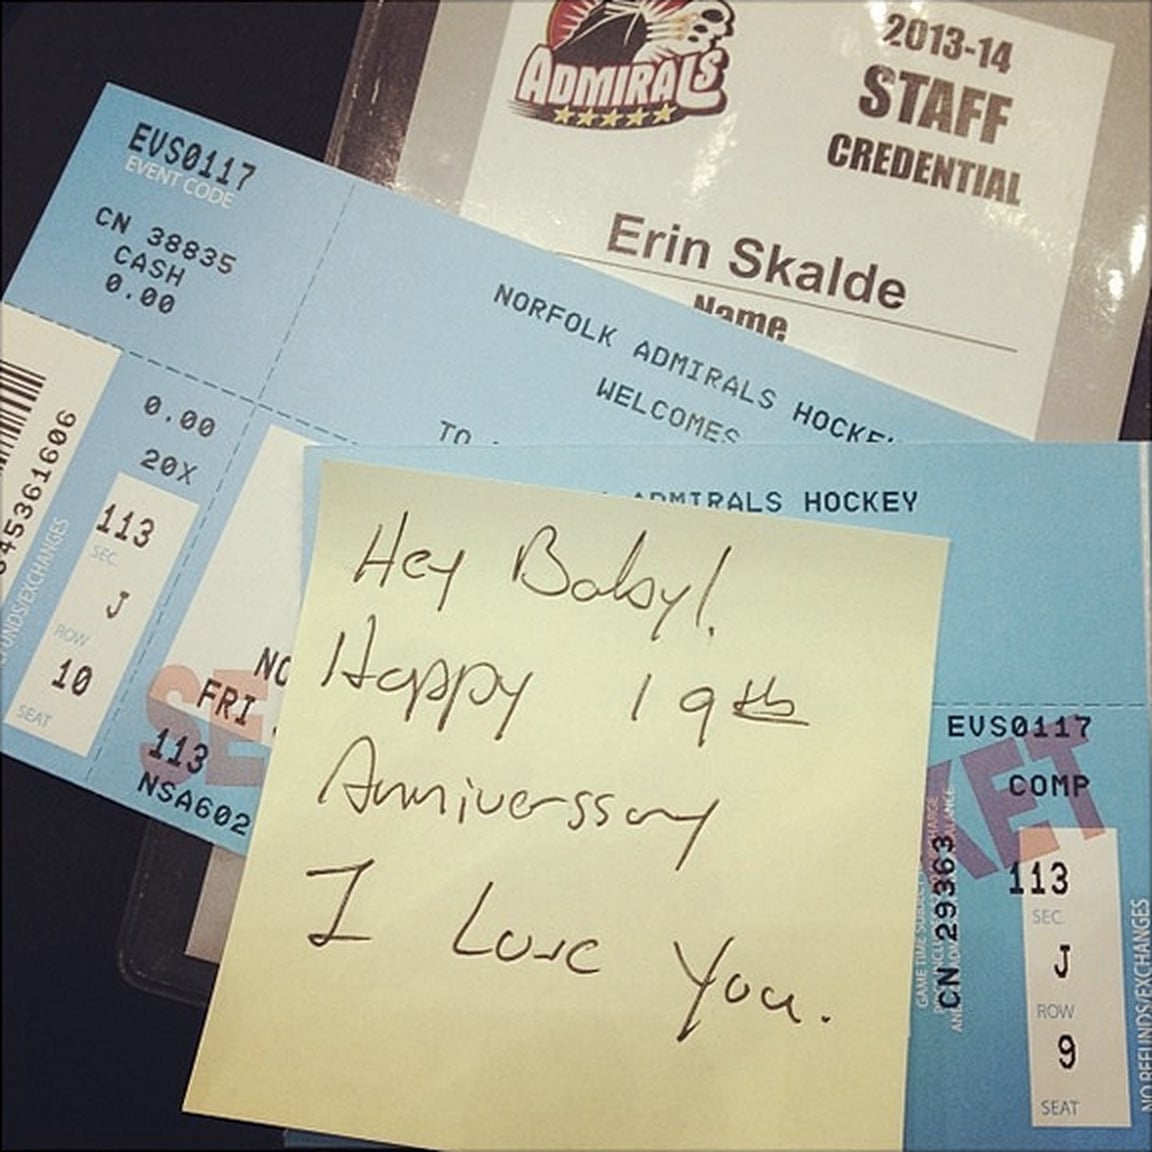 ADMIRALS
2013-14
STAFF
CREDENTIAL
Erin Skalde
Name
EVS0117
EVENT CODE
CN 38835
CASH
0.00
NORFOLK ADMIRALS HOCKEY
WELCOMES
TO
0.00
20X
45361606
113
SEC.
J
ROW
10
SEAT
FRI
113
NSA602
ADMIRALS HOCKEY
Hey Baby!
Happy 19th
Anniverssary
I Love You.
EVS0117
COMP
CN 29363
113
SEC.
J
ROW
9
SEAT
NO REFUNDS/EXCHANGES